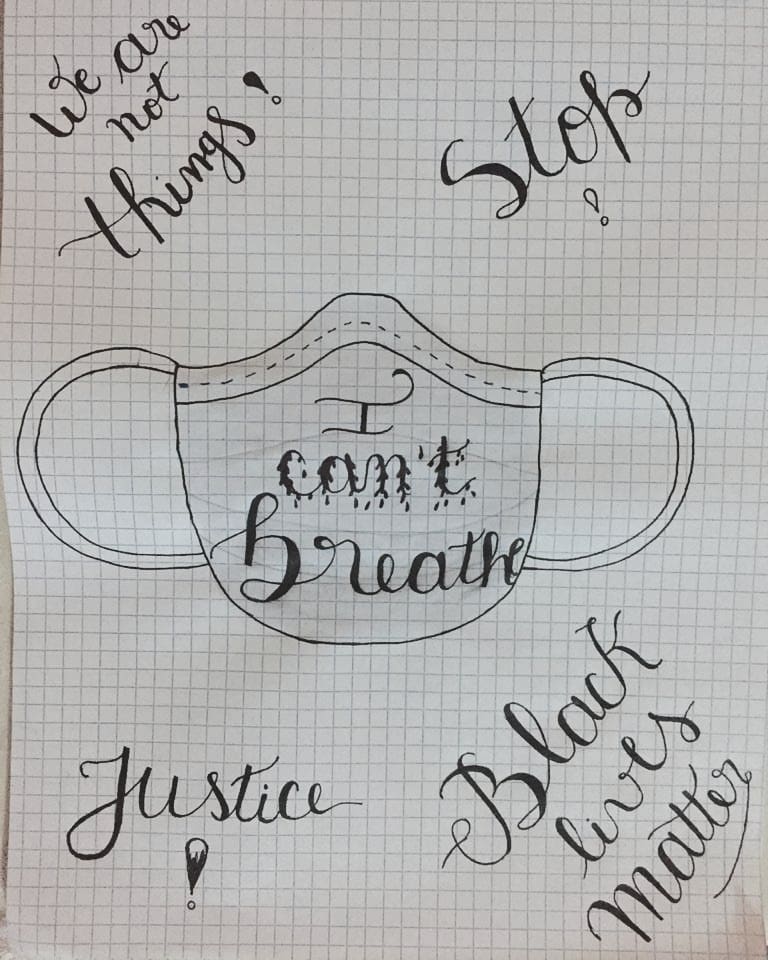 We are
not
things!
Stop
!
I
can't
breathe
Justice
!
Black
lives
Matter